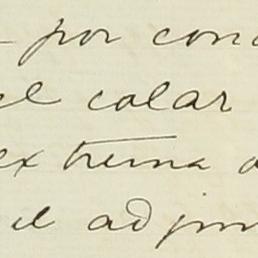 por cond
el colar
extrema d
el adjun